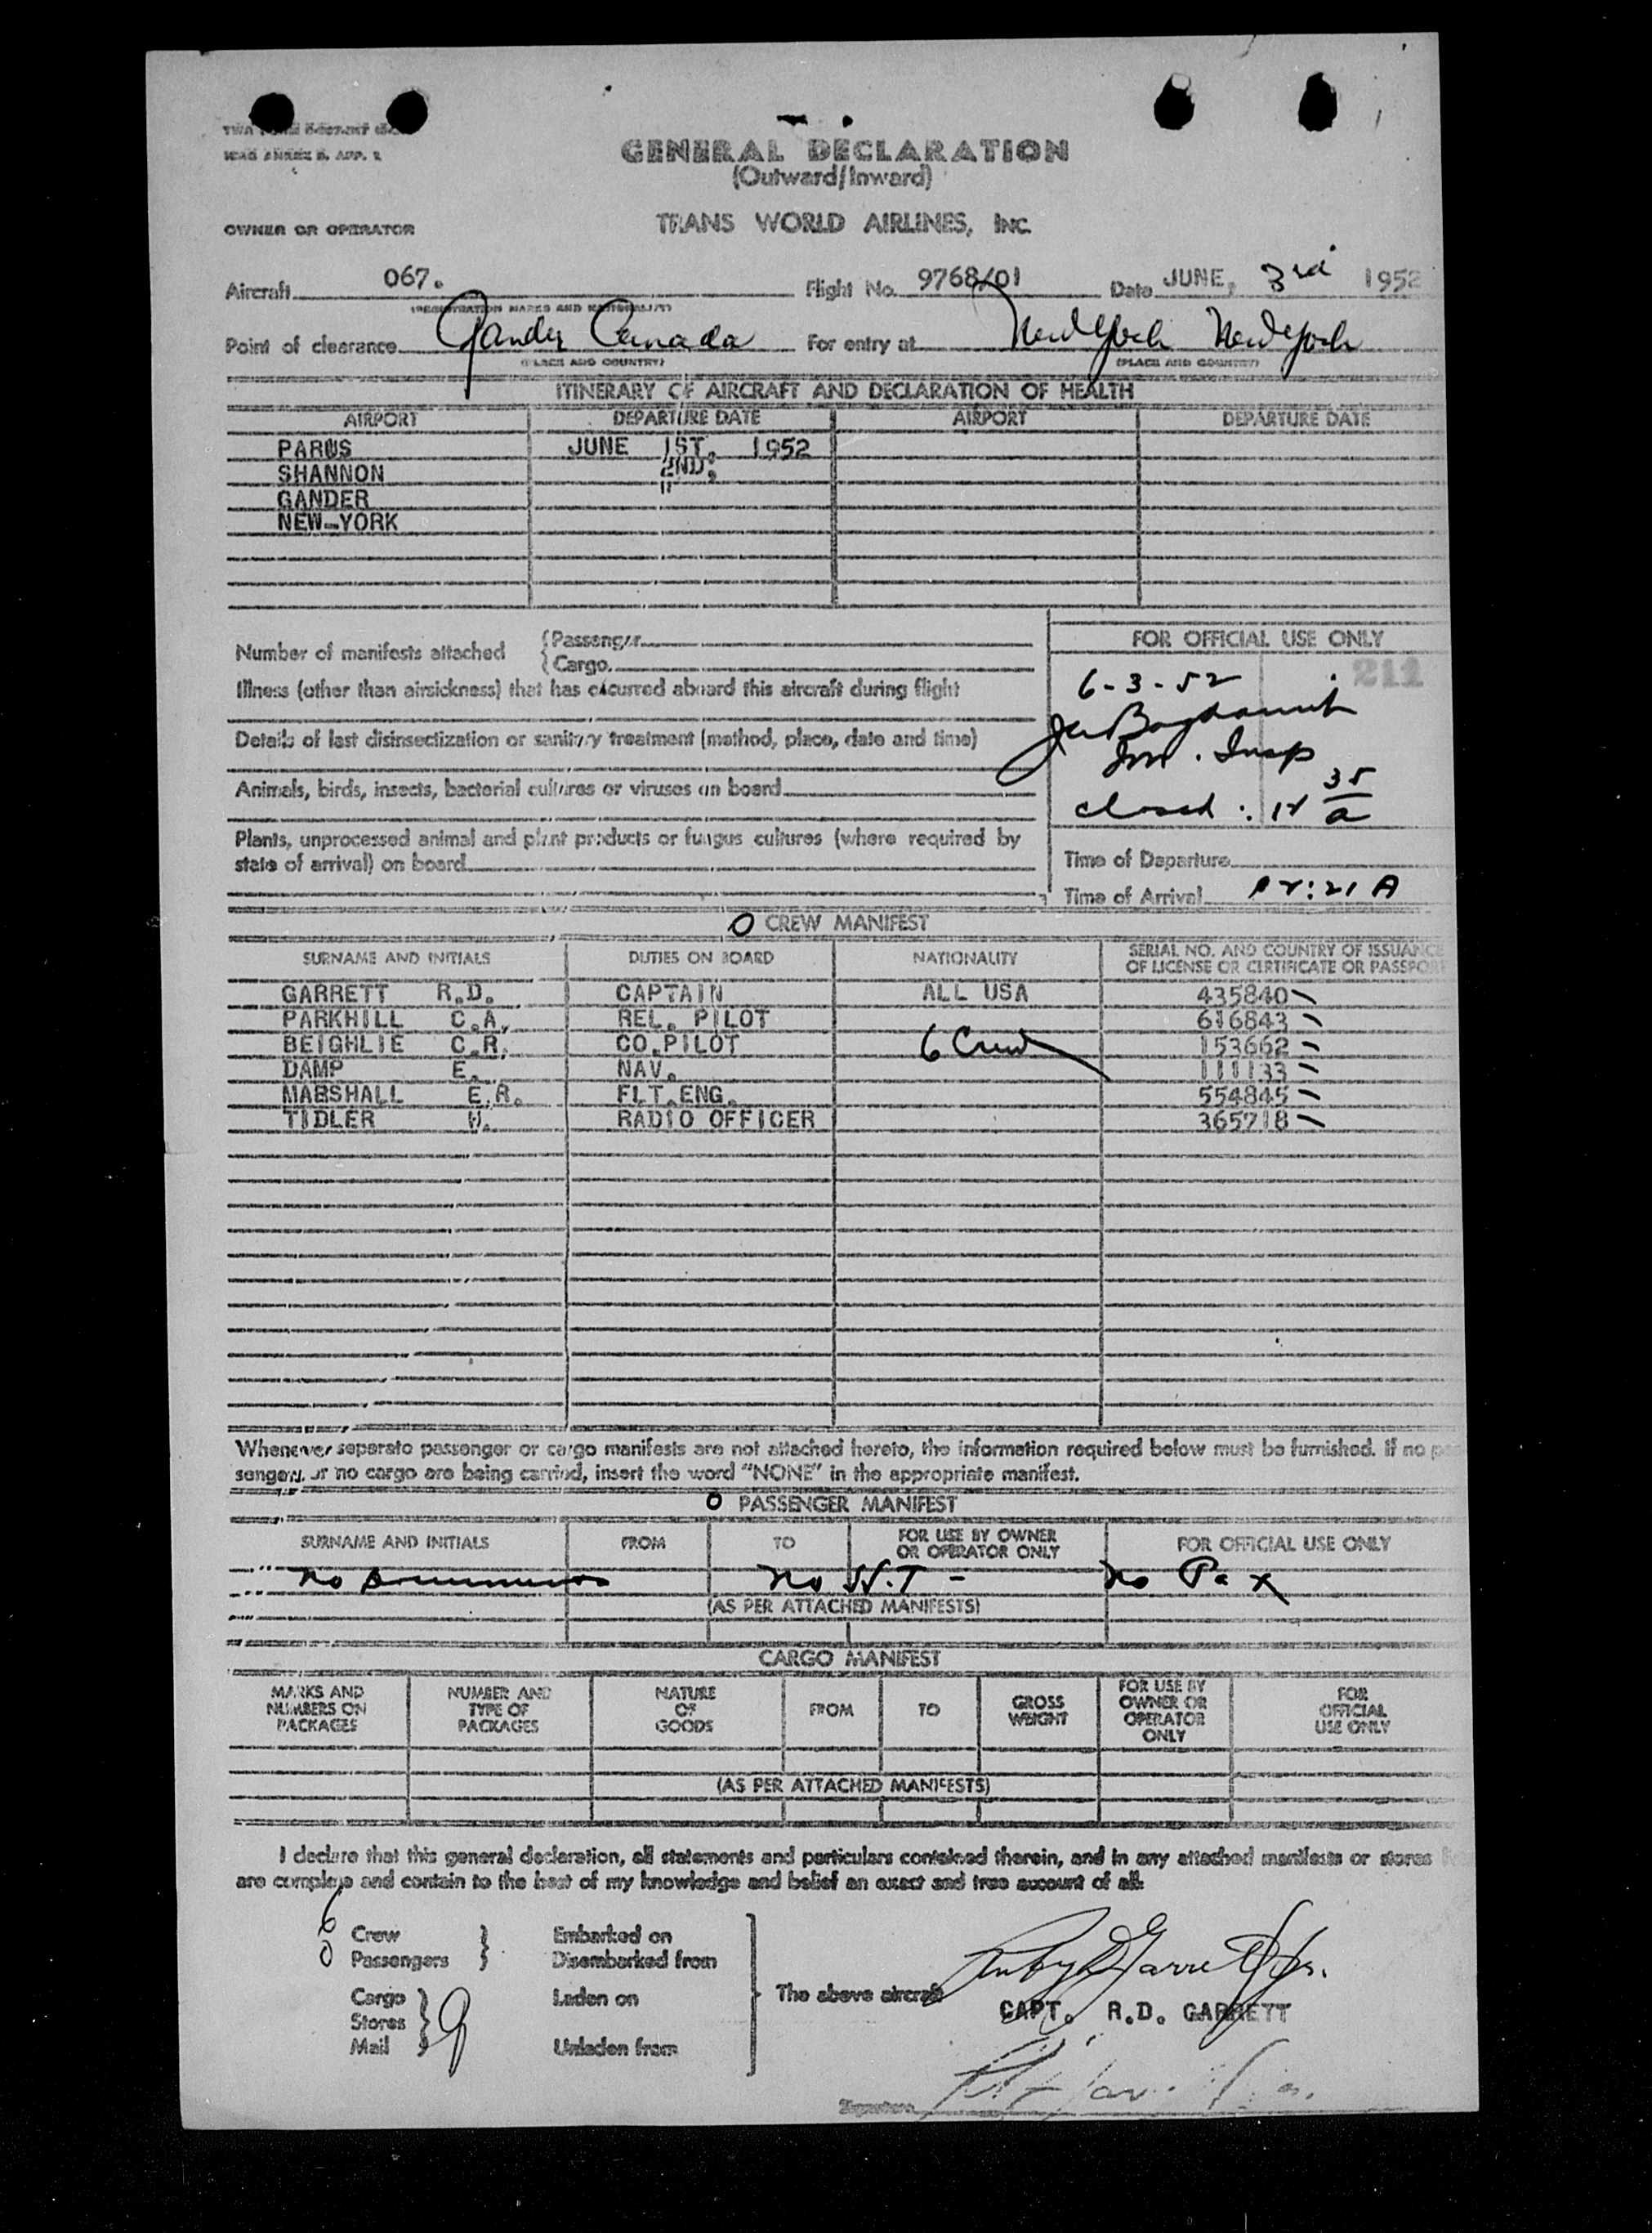 GENERAL DECLARATION
(Outward/Inward)
OWNER OR OPERATOR TRANS WORLD AIRLINES, INC.
Aircraft 067. Flight No. 9768/01 Date JUNE, 3rd 1952
(REGISTRATION MARKS AND NATIONALITY)
Point of clearance Gander Canada For entry at New York New York
(PLACE AND COUNTRY) (PLACE AND COUNTRY)
ITINERARY OF AIRCRAFT AND DECLARATION OF HEALTH
AIRPORT DEPARTURE DATE AIRPORT DEPARTURE DATE
PARIS JUNE 1ST. 1952
SHANNON 2ND.
GANDER "
NEW-YORK
Number of manifests attached {Passenger
{Cargo
FOR OFFICIAL USE ONLY
211
6-3-52
Im. Insp
closed : 12 35/a
Illness (other than airsickness) that has occurred aboard this aircraft during flight
Details of last disinsectization or sanitary treatment (method, place, date and time)
Animals, birds, insects, bacterial cultures or viruses on board
Plants, unprocessed animal and plant products or fungus cultures (where required by
state of arrival) on board
Time of Departure
Time of Arrival 12:21 A
O CREW MANIFEST
SURNAME AND INITIALS DUTIES ON BOARD NATIONALITY SERIAL NO. AND COUNTRY OF ISSUANCE
OF LICENSE OR CERTIFICATE OR PASSPOR
GARRETT R.D. CAPTAIN ALL USA 435840
PARKHILL C.A. REL. PILOT 616843
BEIGHLIE C.R. CO.PILOT 6 Crew 153662
DAMP E. NAV. 111133
MARSHALL E.R. FLT.ENG. 554845
TIDLER W. RADIO OFFICER 365718
Whenever separate passenger or cargo manifests are not attached hereto, the information required below must be furnished. If no
sengers or no cargo are being carried, insert the word "NONE" in the appropriate manifest.
O PASSENGER MANIFEST
SURNAME AND INITIALS FROM TO FOR USE BY OWNER
OR OPERATOR ONLY FOR OFFICIAL USE ONLY
no no W.T - no Pax
(AS PER ATTACHED MANIFESTS)
CARGO MANIFEST
MARKS AND
NUMBERS ON
PACKAGES
NUMBER AND
TYPE OF
PACKAGES
NATURE
OF
GOODS
FROM
TO
GROSS
WEIGHT
FOR USE BY
OWNER OR
OPERATOR
ONLY
FOR
OFFICIAL
USE ONLY
(AS PER ATTACHED MANIFESTS)
I declare that this general declaration, all statements and particulars contained therein, and in any attached manifests or stores
are complete and contain to the best of my knowledge and belief an exact and true account of all:
6 Crew } Embarked on
0 Passengers } Disembarked from
Cargo } Laden on The above aircraft
Stores
Mail } Unladen from
Ruby D Garrett Jr.
CAPT. R.D. GARRETT
Signature